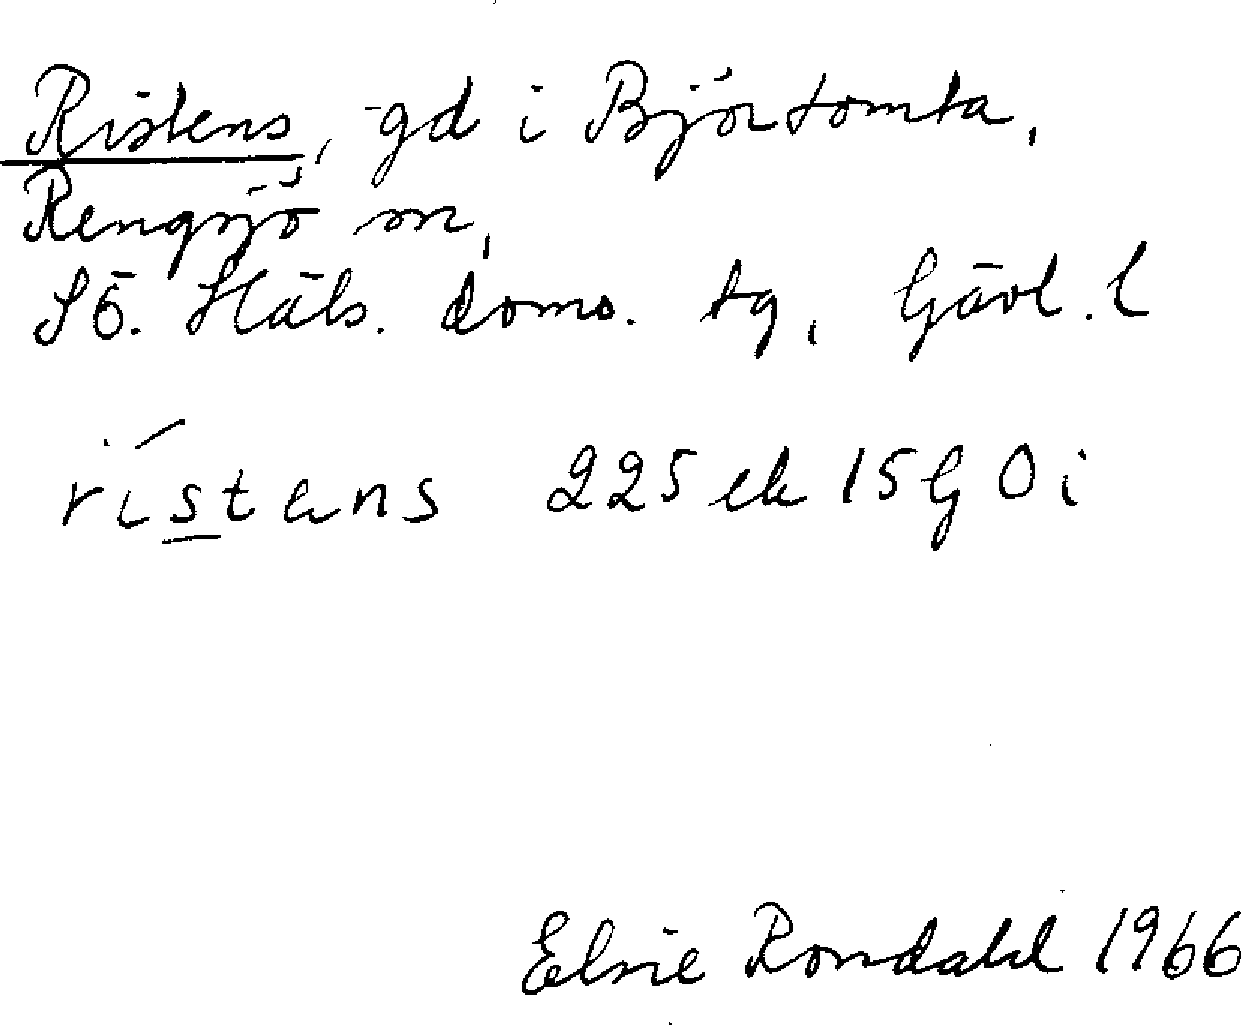 Ristens, gd i Björtomta,
Rengsjö sn,
Sö. Häls. doms. tg, Gävl. l
ristens 225 ek 15 G 0 i
Elsie Rondahl 1966